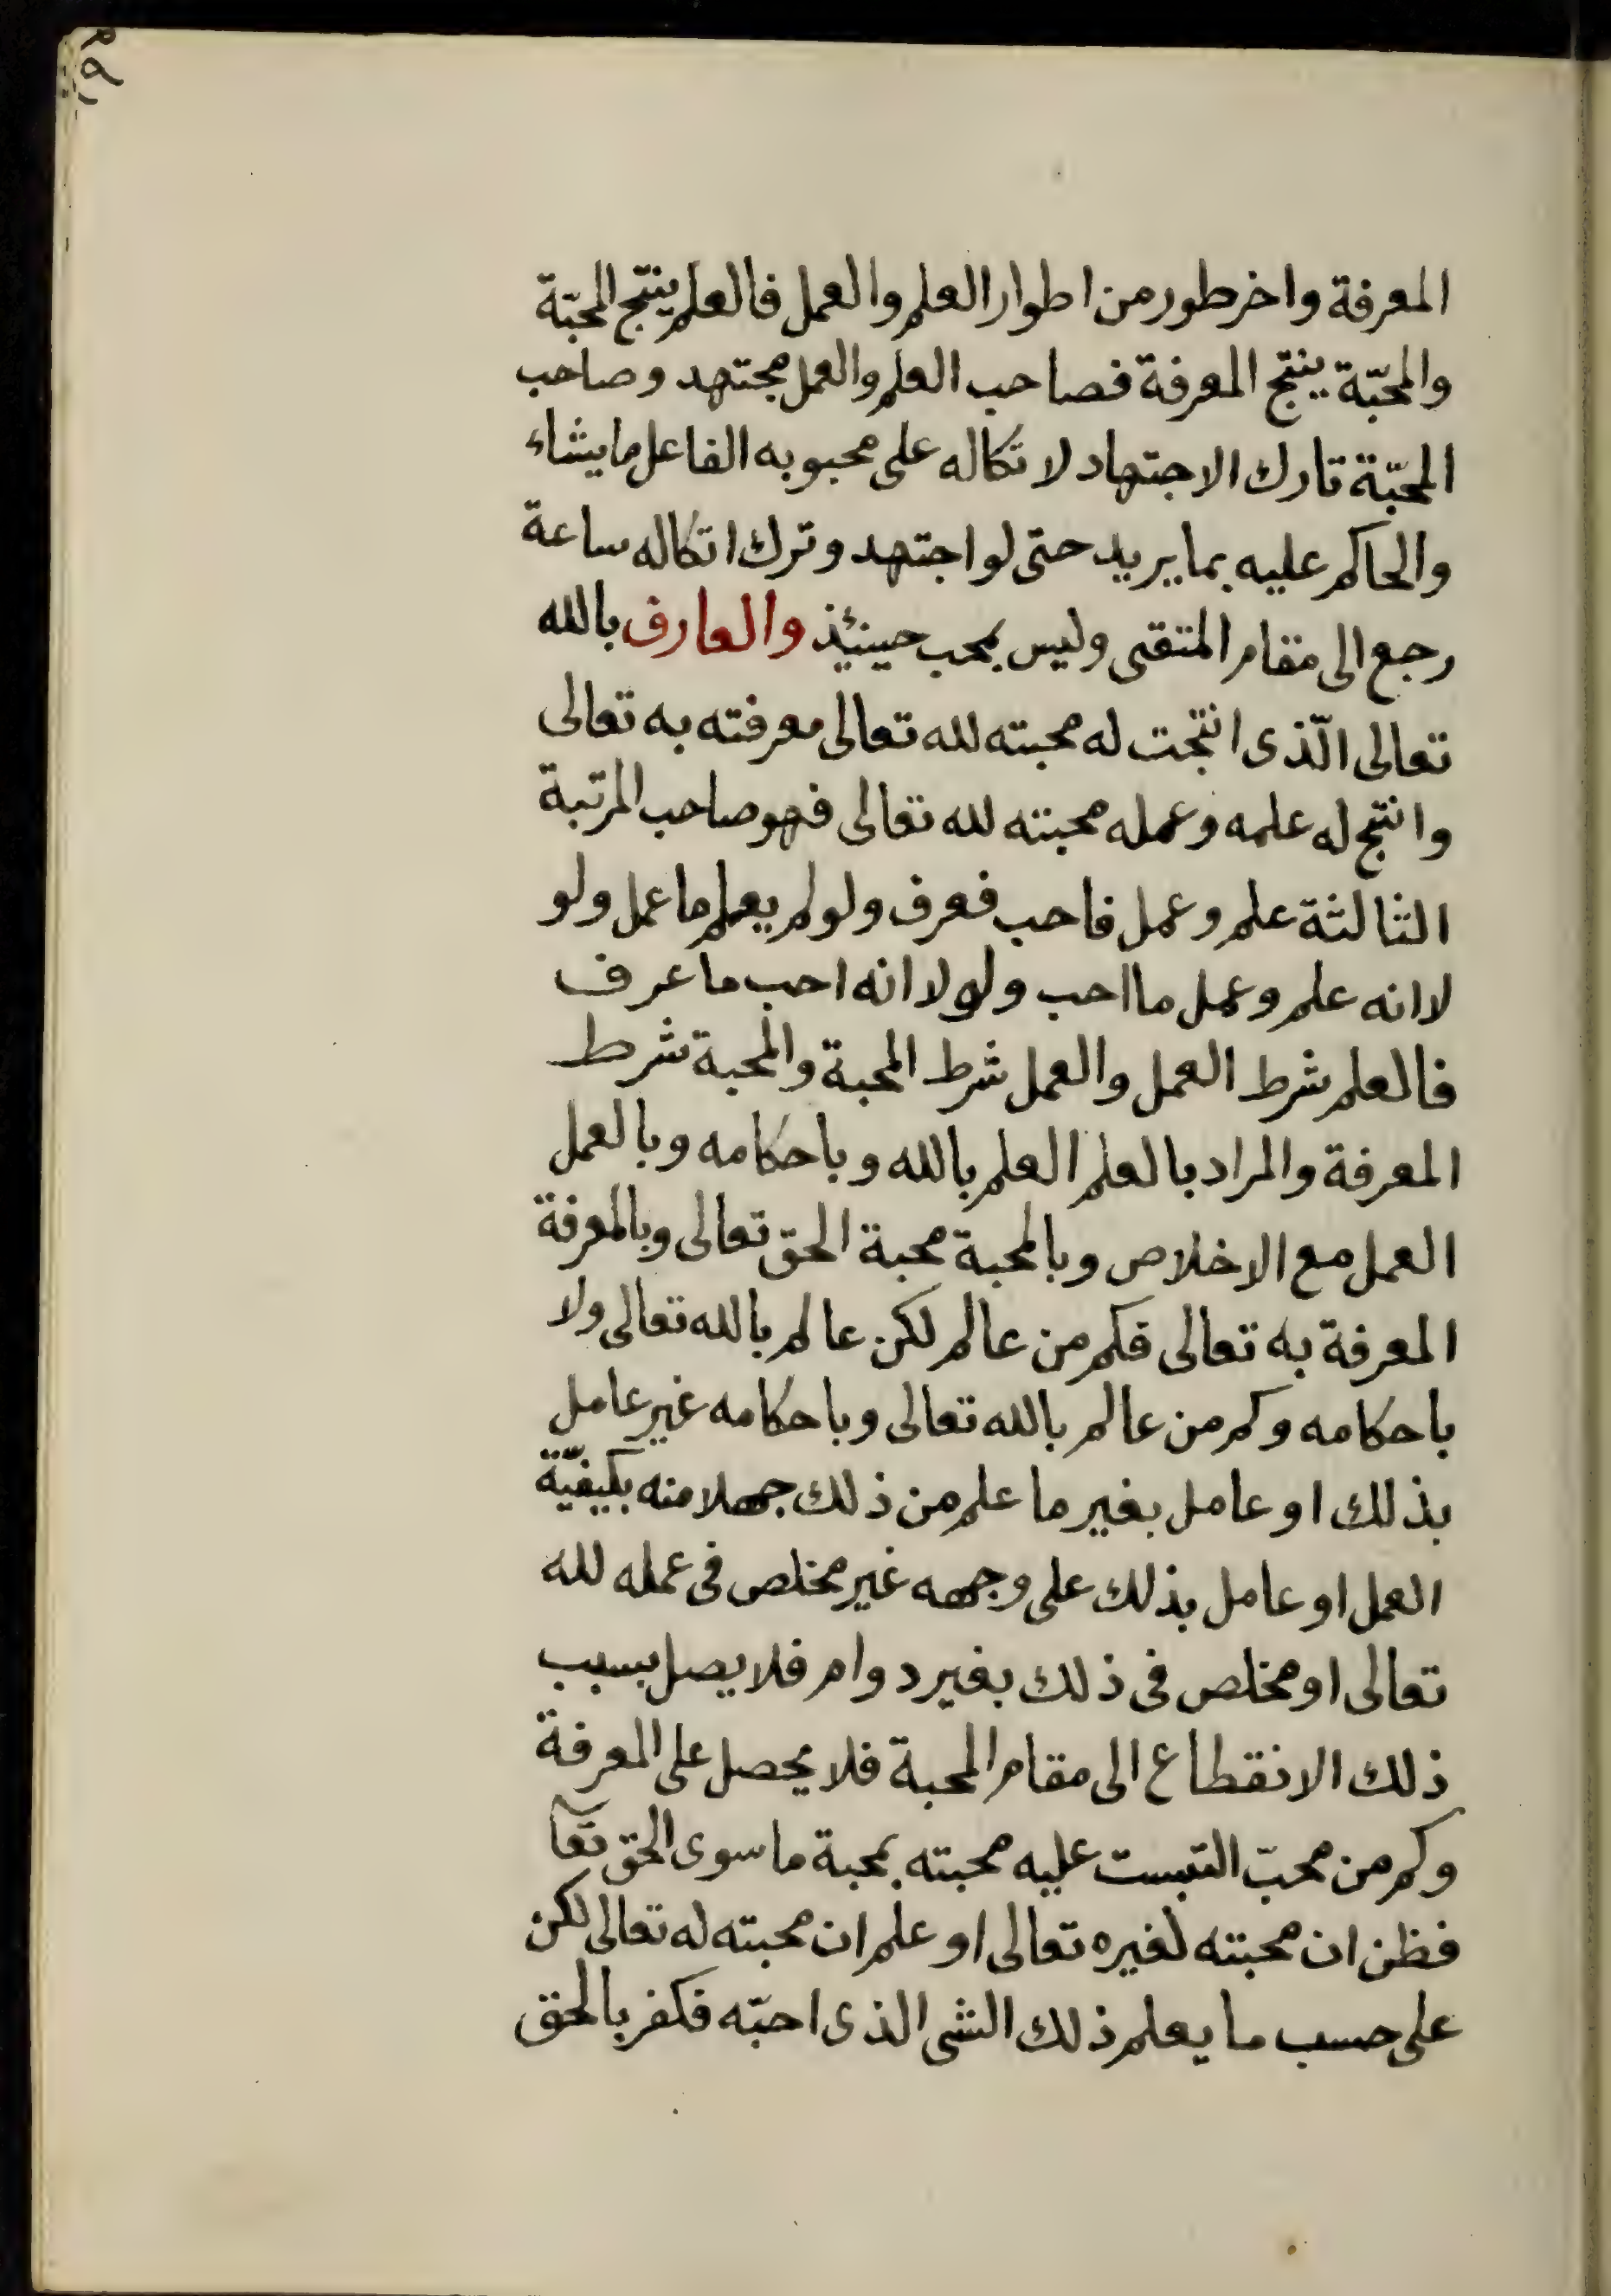 المعرفة واخر طور من اطوار العلم والعمل فالعلم ينتج المحبّة
والمحبّة ينتج المعرفة فصاحب العلم والعمل مجتهد وصاحب
المحبّة تارك الاجتهاد لا تكاله على محبوبه الفاعل ما يشاء
والحاكم عليه بما يريد حتى لو اجتهد وترك اتكاله ساعة
رجع الى مقام المتقى وليس بمحب حينئذ والعارف بالله
تعالى الّذى انتجت له محبته لله تعالى معرفته به تعالى
وانتج له علمه وعمله محبته لله تعالى فهو صاحب المرتبة
الثالثة علم وعمل فاحب فعرف ولو لم يعلم ما عمل ولو
لا انه علم وعمل ما احب ولو لا انه احب ما عرف
فالعلم شرط العمل والعمل شرط المحبة والمحبة شرط
المعرفة والمراد بالعلم العلم بالله وباحكامه وبالعمل
العمل مع الاخلاص وبالمحبة محبة الحق تعالى وبالمعرفة
المعرفة به تعالى فكم من عالم لكن عالم بالله تعالى ولا
باحكامه وكم من عالم بالله تعالى وباحكامه غير عامل
بذلك او عامل بغير ما علم من ذلك جهلا منه بكيفيّة
العمل او عامل بذلك على وجهه غير مخلص فى عمله لله
تعالى او مخلص فى ذلك بغير دوام فلا يصل بسبب
ذلك الانقطاع الى مقام المحبة فلا يحصل على المعرفة
وكم من محبّ التبست عليه محبته بمحبة ما سوى الحق تعا
فظن ان محبته لغيره تعالى او علم ان محبته له تعالى لكن
على حسب ما يعلم ذلك الشى الذى احبّه فكفر بالحق